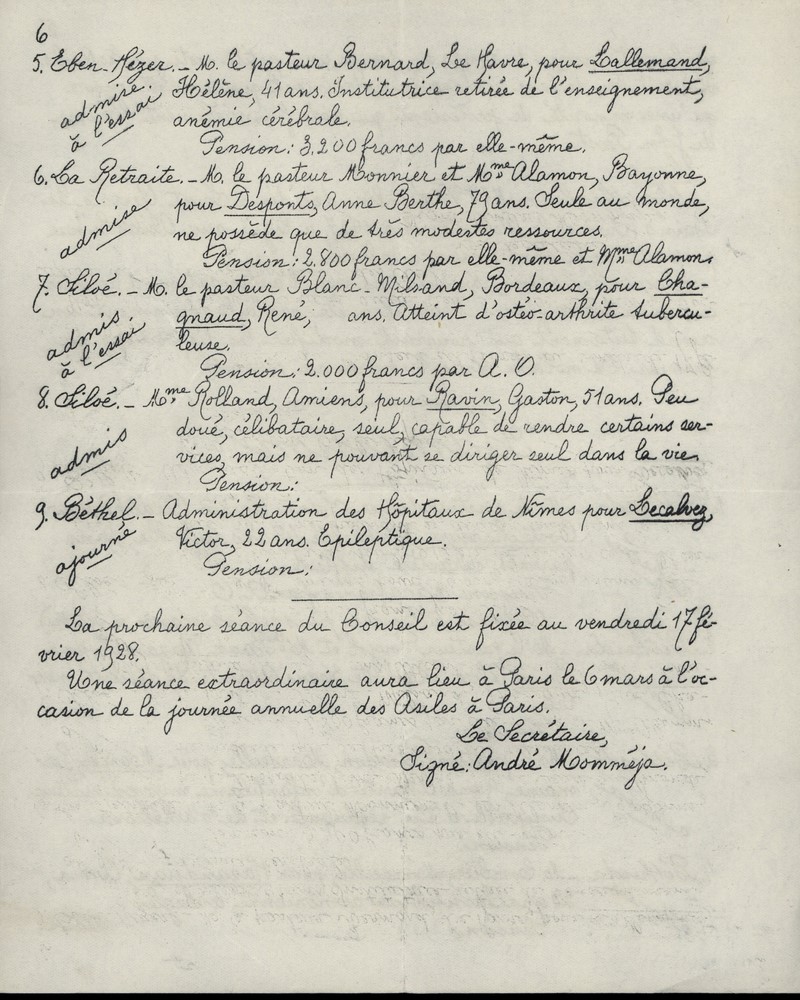 6
5. Eben-Hézer. – M. le pasteur Bernard, Le Havre, pour Lallemand,
admise
à l'essai
Hélène, 41 ans. Institutrice retirée de l'enseignement,
anémie cérébrale.
Pension: 3.200 francs par elle-même.
6. La Retraite. – M. le pasteur Monnier et Mme Alamon, Bayonne,
admise
pour Desponts, Anne Berthe, 79 ans. Seule au monde,
ne possède que de très modestes ressources.
Pension: 2.800 francs par elle-même et Mme Alamon.
7. Siloé. – M. le pasteur Blanc-Milsand, Bordeaux, pour Cha-
admis
à l'essai
gnaud, René, ans. Atteint d'ostéo-arthrite tubercu-
leuse.
Pension: 2.000 francs par A. O.
8. Siloé. – Mme Rolland, Amiens, pour Ravin, Gaston, 51 ans. Peu
admis
doué, célibataire, seul, capable de rendre certains ser-
vices, mais ne pouvant se diriger seul dans la vie.
Pension:
9. Béthel. – Administration des Hôpitaux de Nîmes pour Lecalvez,
ajourné
Victor, 22 ans. Epileptique.
Pension:
La prochaine séance du Conseil est fixée au vendredi 17 fé-
vrier 1928.
Une séance extraordinaire aura lieu à Paris le 6 mars à l'oc-
casion de la journée annuelle des Asiles à Paris.
Le Secrétaire,
Signé: André Momméja.